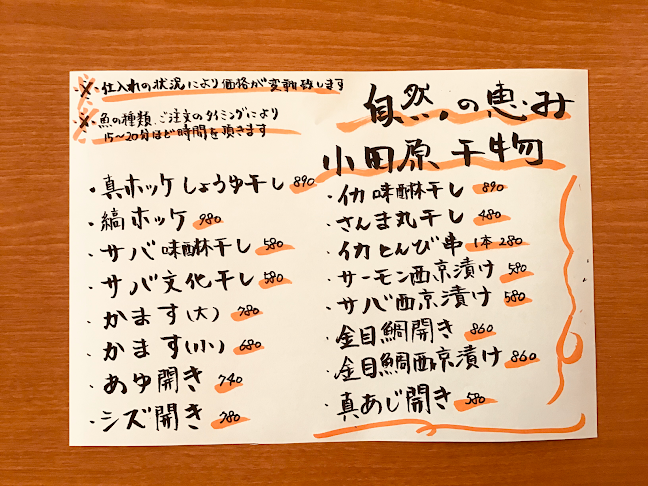 ※仕入れの状況により価格が変動致します
※魚の種類、ご注文のタイミングにより
15〜20分ほど時間を頂きます
自然の恵み
小田原 干物
・真ホッケしょうゆ干し 890
・縞ホッケ 980
・サバ味醂干し 580
・サバ文化干し 580
・かます(大) 780
・かます(小) 680
・あゆ開き 740
・シズ開き 780
・イカ味醂干し 890
・さんま丸干し 480
・イカとんび串 1本 280
・サーモン西京漬け 580
・サバ西京漬け 580
・金目鯛開き 860
・金目鯛西京漬け 860
・真あじ開き 580